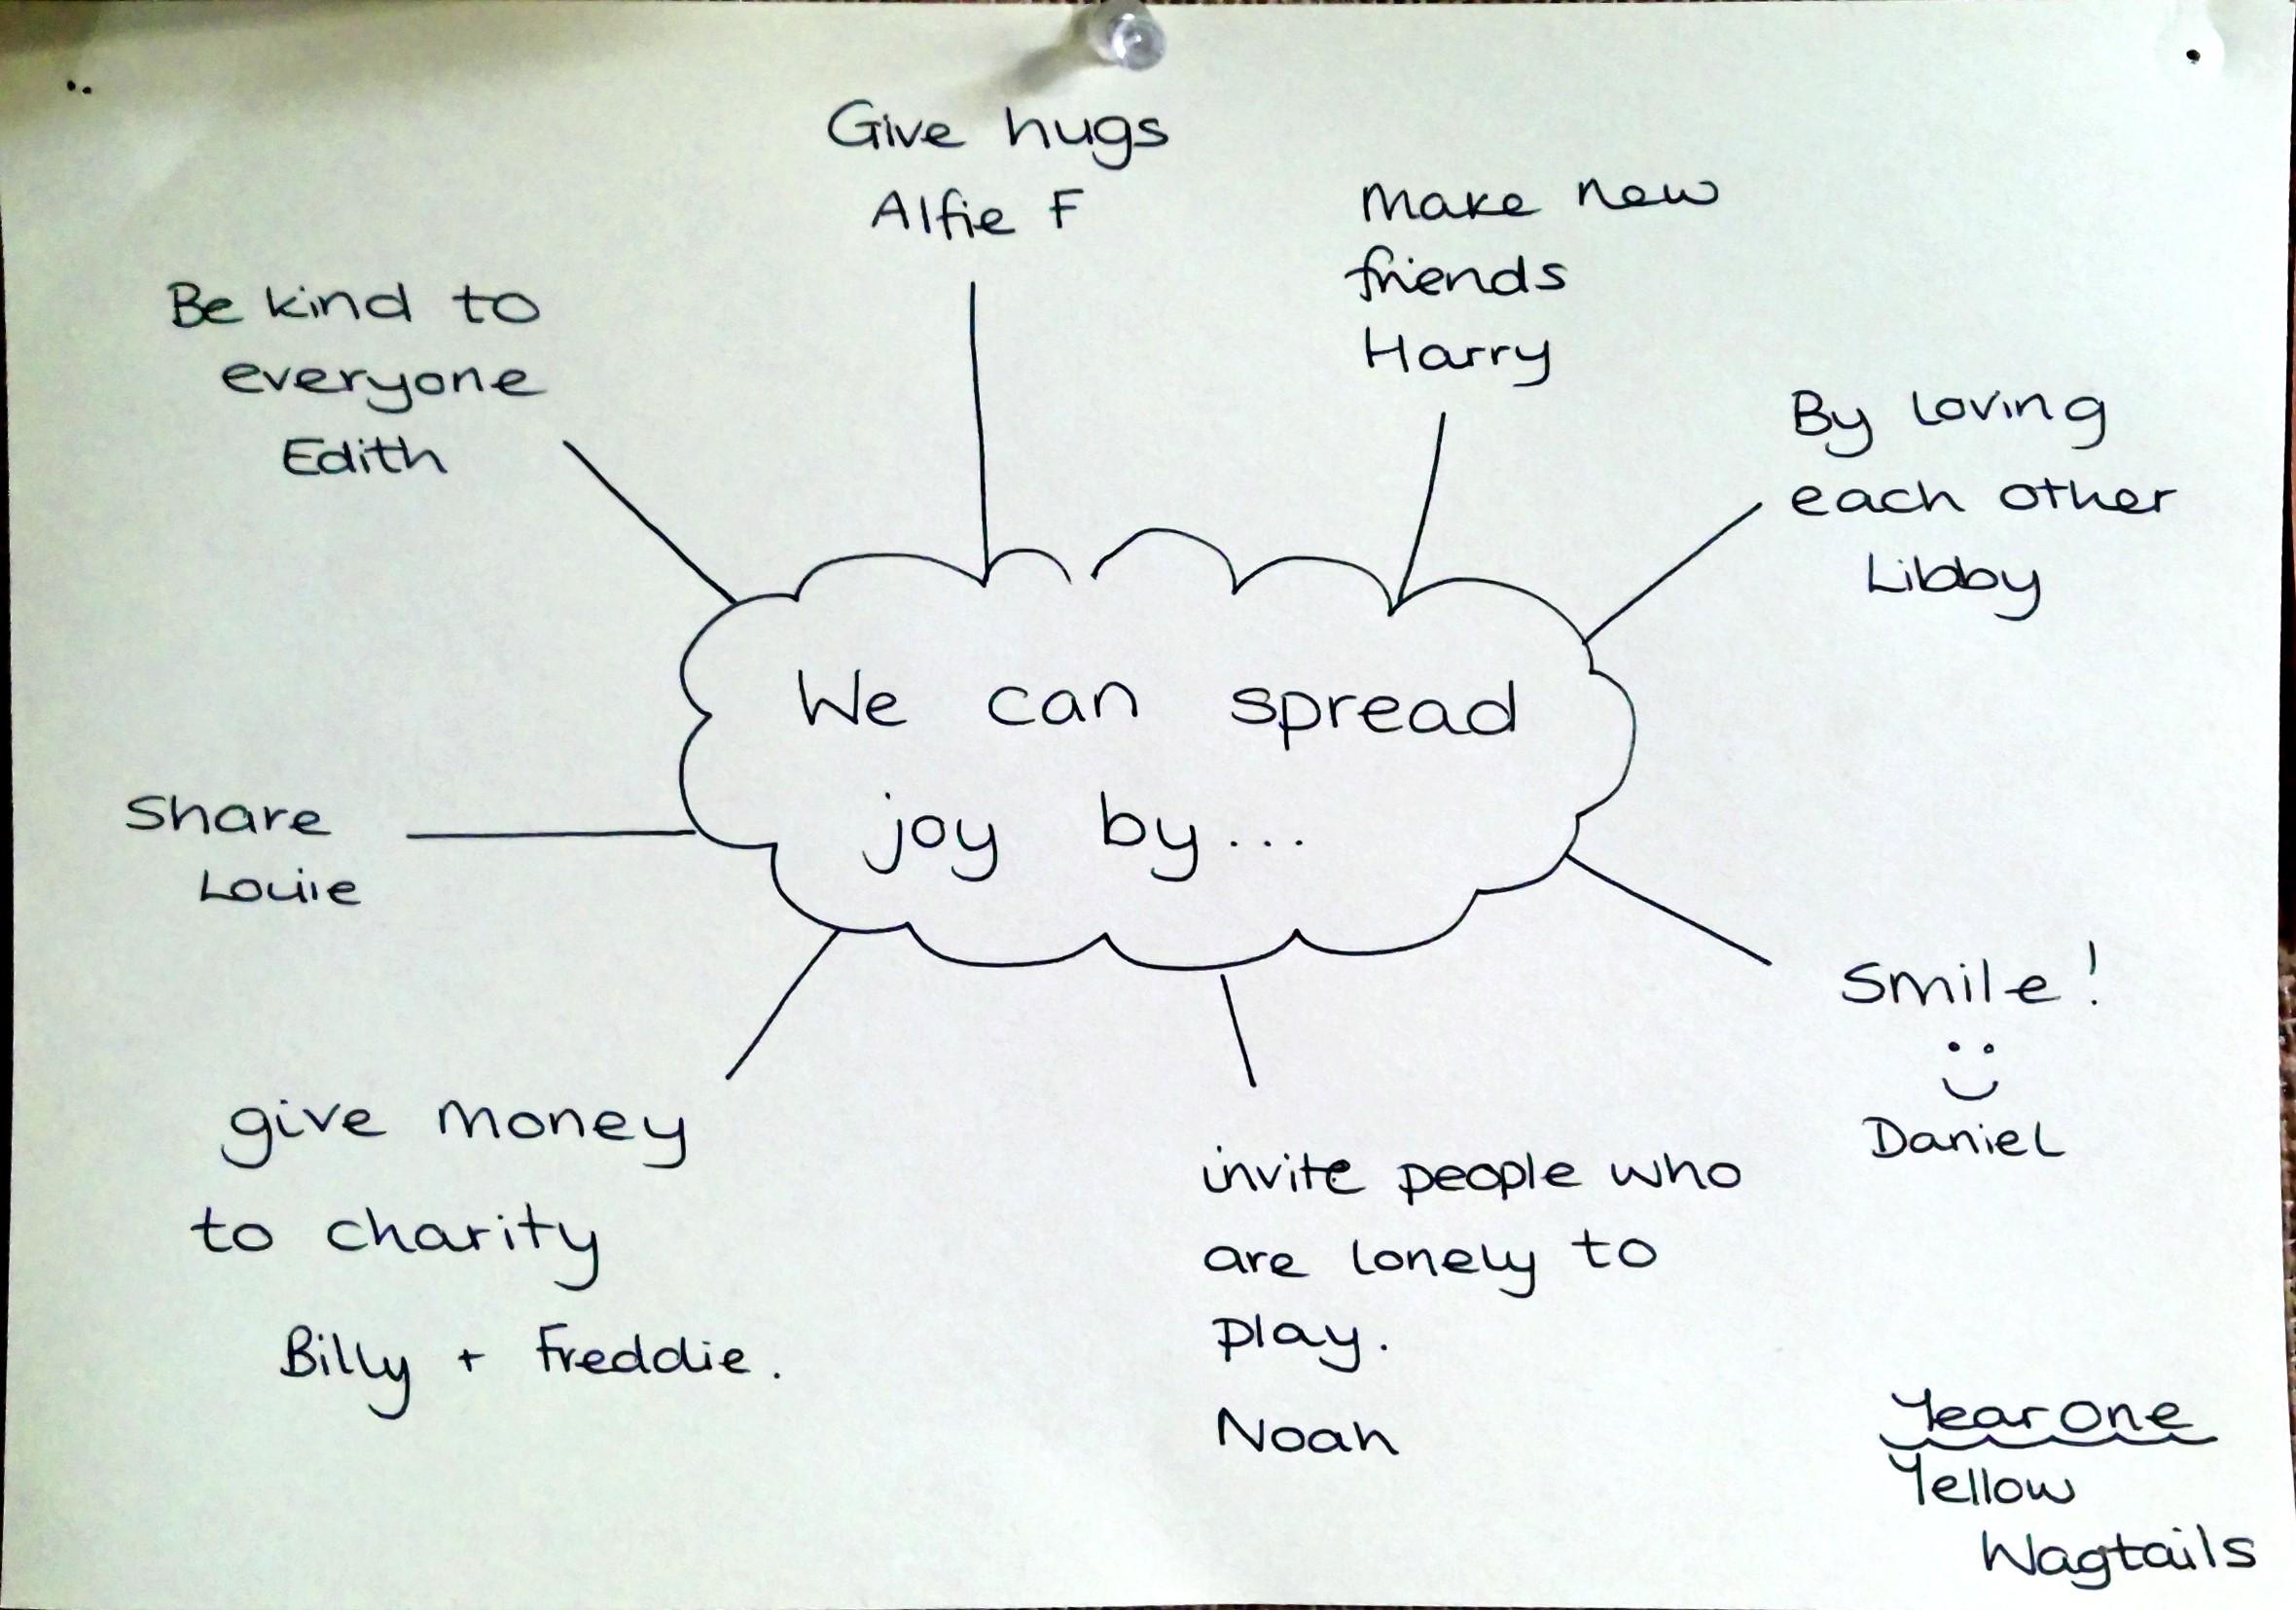 Give hugs
Alfie F
Make new
friends
Harry
Be kind to
everyone
Edith
By loving
each other
Libby
We can spread
joy by...
Share
Louie
Smile!
Daniel
give money
to charity
Billy + Freddie.
invite people who
are lonely to
play.
Noah
Year One
Yellow
Wagtails